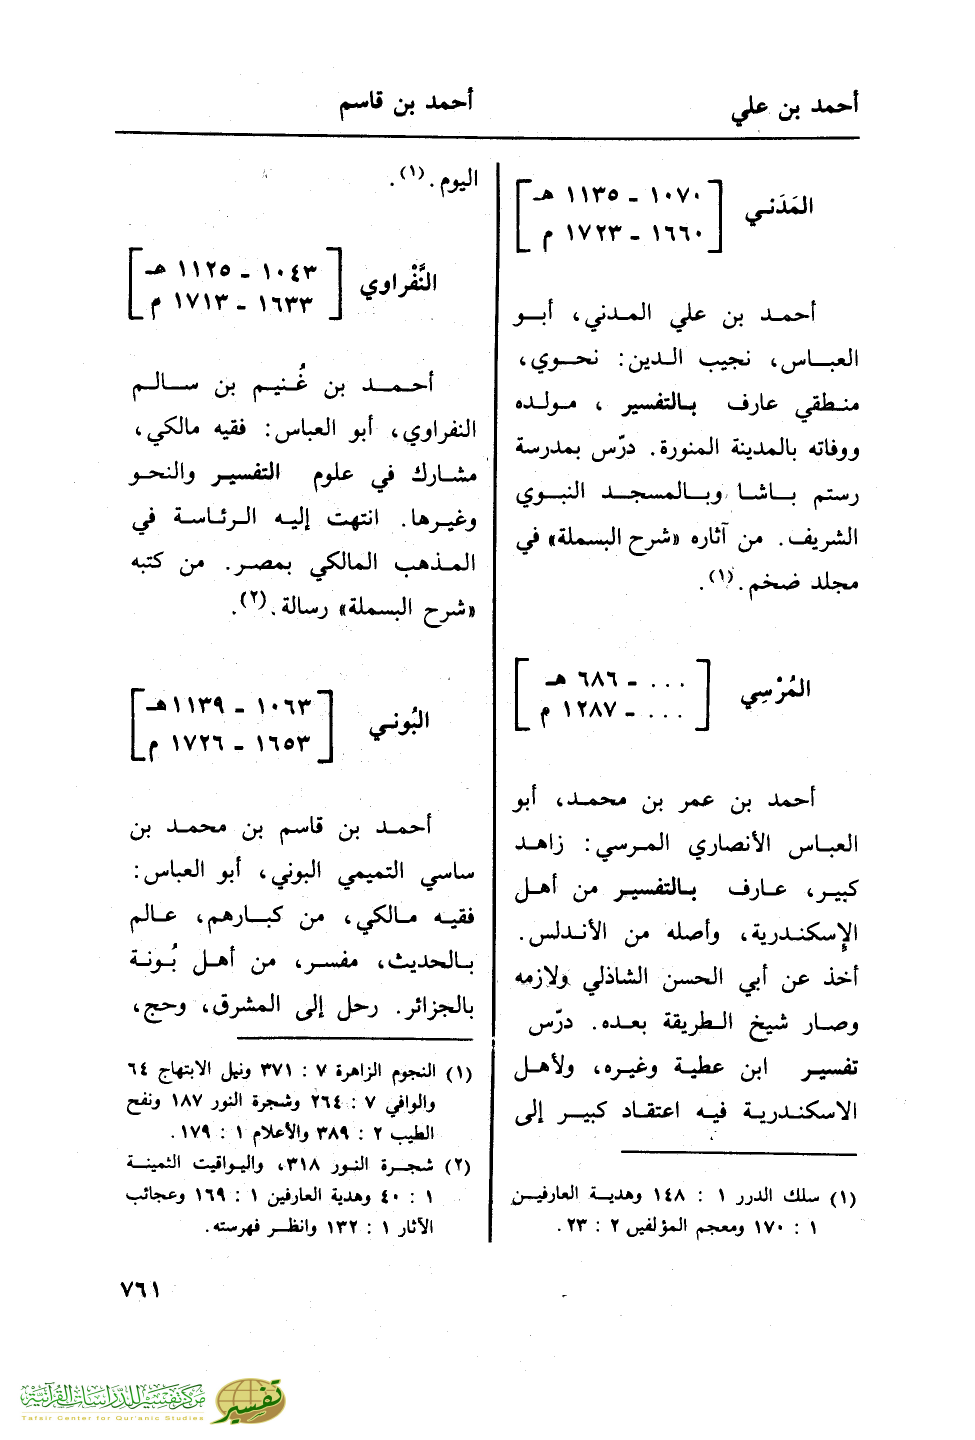 أحمد بن علي
أحمد بن قاسم
المَدَني
١٠٧٠ ـ ١١٣٥ هـ
١٦٦٠ ـ ١٧٢٣ م
أحمد بن علي المدني، أبو
العباس، نجيب الدين: نحوي،
منطقي عارف بالتفسير ، مولده
ووفاته بالمدينة المنورة. درّس بمدرسة
رستم باشا وبالمسجد النبوي
الشريف. من آثاره «شرح البسملة» في
مجلد ضخم.(١).
المُرْسِي
... ـ ٦٨٦ هـ
... ـ ١٢٨٧ م
أحمد بن عمر بن محمد، أبو
العباس الأنصاري المرسي: زاهد
كبير، عارف بالتفسير من أهل
الإسكندرية، وأصله من الأندلس.
أخذ عن أبي الحسن الشاذلي ولازمه
وصار شيخ الطريقة بعده. درّس
تفسير ابن عطية وغيره، ولأهل
الاسكندرية فيه اعتقاد كبير إلى
(١) سلك الدرر ١ : ١٤٨ وهدية العارفين
١ : ١٧٠ ومعجم المؤلفين ٢ : ٢٣.
اليوم.(١).
النَّفْراوي
١٠٤٣ ـ ١١٢٥ هـ
١٦٣٣ ـ ١٧١٣ م
أحمد بن غُنيم بن سالم
النفراوي، أبو العباس: فقيه مالكي،
مشارك في علوم التفسير والنحو
وغيرها. انتهت إليه الرئاسة في
المذهب المالكي بمصر. من كتبه
«شرح البسملة» رسالة.(٢).
البُوني
١٠٦٣ ـ ١١٣٩ هـ
١٦٥٣ ـ ١٧٢٦ م
أحمد بن قاسم بن محمد بن
ساسي التميمي البوني، أبو العباس:
فقيه مالكي، من كبارهم، عالم
بالحديث، مفسر، من أهل بُونة
بالجزائر. رحل إلى المشرق، وحج،
(١) النجوم الزاهرة ٧ : ٣٧١ ونيل الابتهاج ٦٤
والوافي ٧ : ٢٦٤ وشجرة النور ١٨٧ ونفح
الطيب ٢ : ٣٨٩ والأعلام ١ : ١٧٩.
(٢) شجرة النور ٣١٨، واليواقيت الثمينة
١ : ٤٠ وهدية العارفين ١ : ١٦٩ وعجائب
الآثار ١ : ١٣٢ وانظر فهرسته.
٧٦١
مركز تفسير للدراسات القرآنية
Tafsir Center for Qur'anic Studies
تفسير